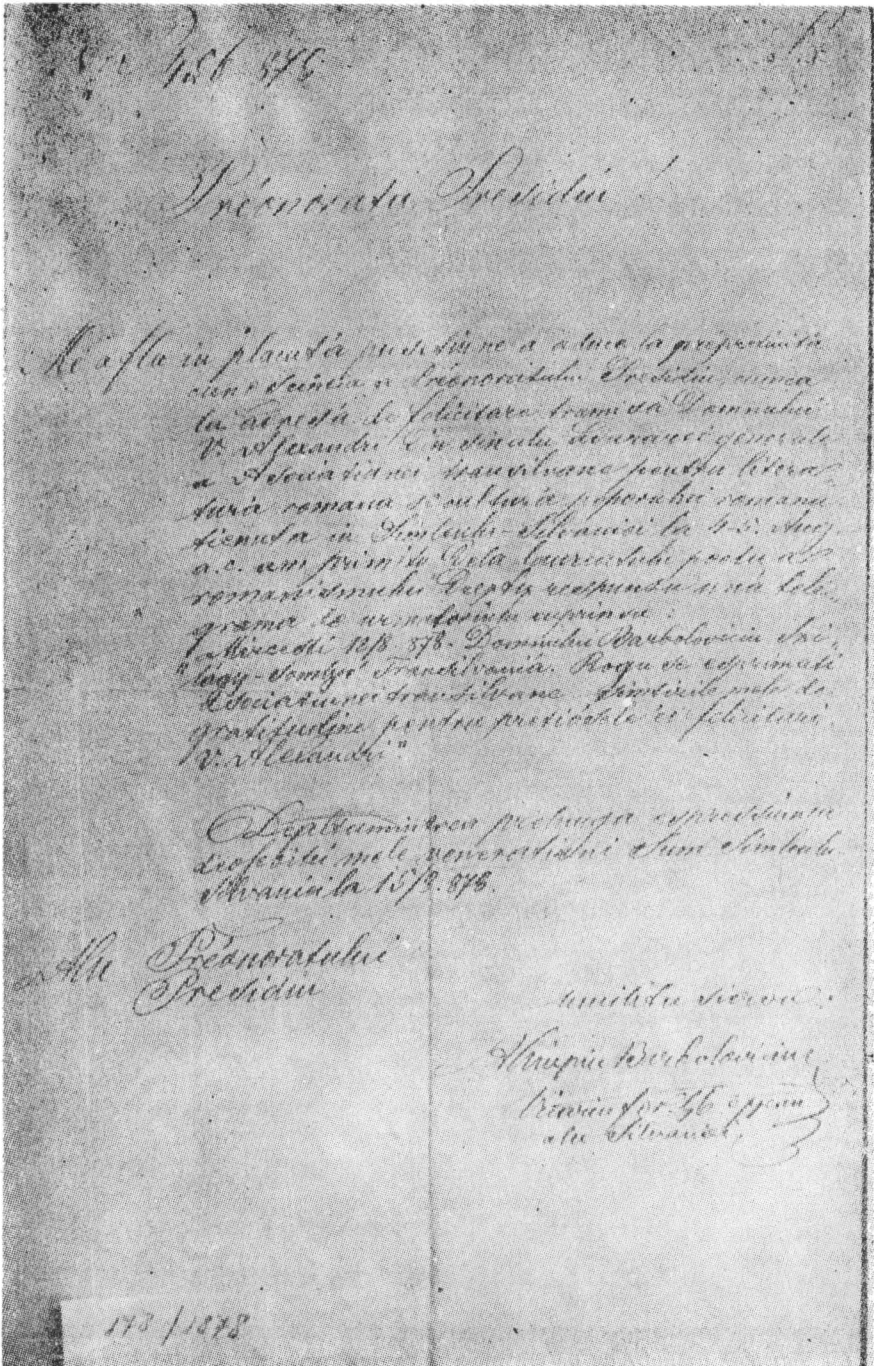 456 878
Préonoratu Presidiu!
Me aflu in placuta pusetiune a aduce la pretiuita
cunoscintia a Préonoratului Presidiu, cumca
la adresa de felicitare tramisa Domnului
V. Alexandri din sinulu Adunarei generale
a Asociatiunei transilvane pentru litera-
tura romana si cultura poporului romanu
tienuta in Simleulu-Silvaniei la 4-5. Aug.
a.c. am primitu dela laureatulu poetu a
romanismului dreptu respunsu una tele-
grama de urmatoriulu cuprinsu:
"Mircesti 12/8. 878. Domnului Barboloviciu Szi-
lágy-Somlyó Transilvania. Rogu se esprimati
Asociatiunei transilvane simtirile mele de
gratitudine pentru pretiósele ei felicitari.
V. Alexandri."
Deptamintrea prelunga espressiunea
deosebitei mele veneratiuni sum Simleulu
Silvaniei la 15/8. 878.
Alu Préonoratului
Presidiu
umilitu servu:
Alimpiu Barboloviciu
alu Silvaniei
178/1878